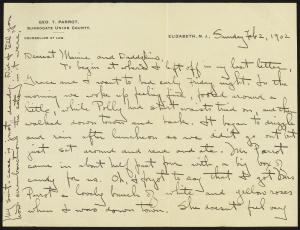 GEO. T. PARROT,
SURROGATE UNION COUNTY.
COUNSELLOR AT LAW.
ELIZABETH, N. J., Sunday Feb 2, 1902
Dearest Mamie and Daddykins,
To begin at where I left off in my last letter,
Grace and I went to bed early Friday night. In the
morning we woke up feeling fine, fooled around a
little, while Polly had
walked down town and back. It began to drizzle
and rain after luncheon as we didn't go out but
just sat around and read and ate. Mr Parrot
came in about half past five with a big box of
candy for us. Oh I forgot to say that I got Mrs
Parrot a lovely bunch of white and yellow roses
when I was down town. She doesn't feel very